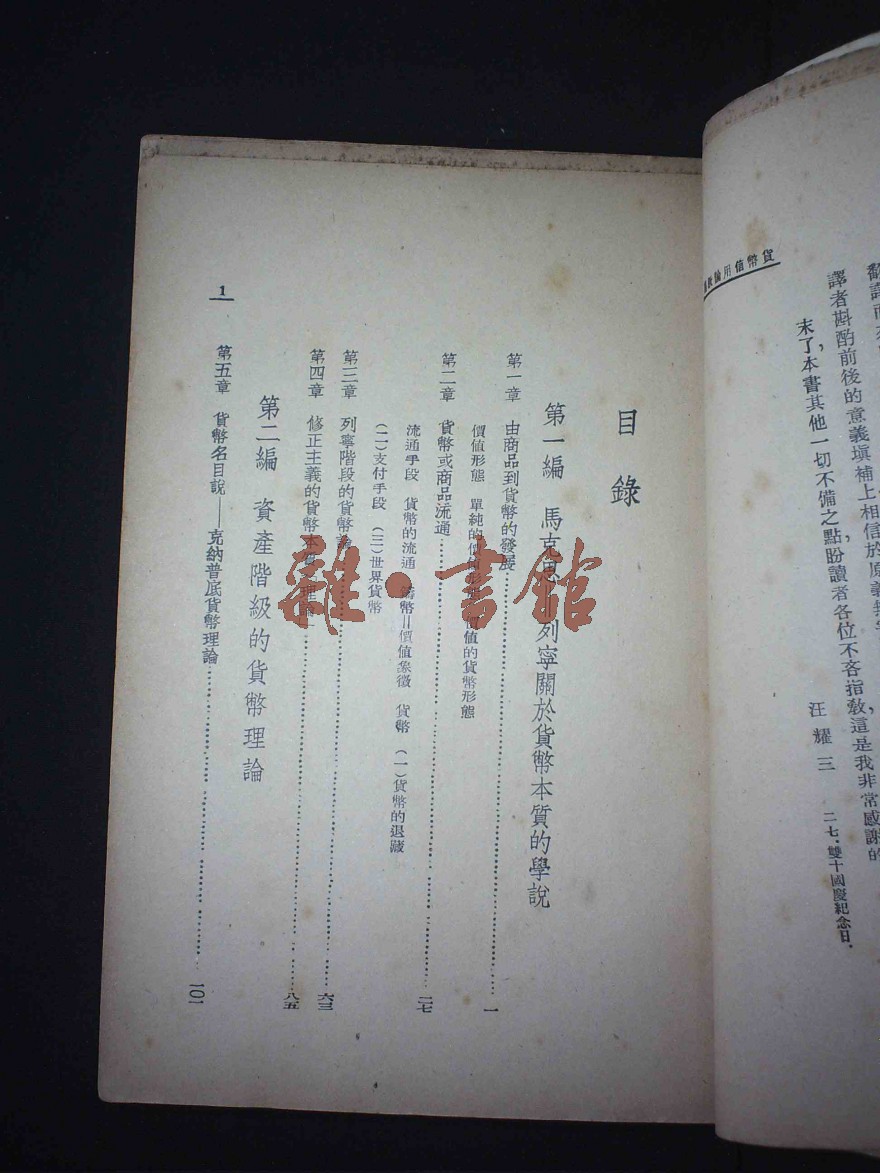 貨幣信用論
譯者斟酌前後的意義填補上相信於原義
末了，本書其他一切不備之點，盼讀者各位不吝指教，這是我非常感謝的
汪耀三
二七．雙十國慶紀念日．
目錄
第一編 馬克思＝列寧關於貨幣本質的學說
第一章 由商品到貨幣的發展 一
價值形態 單純的價值形態 價值的貨幣形態
第二章 貨幣或商品流通 二七
流通手段 貨幣的流通 鑄幣＝價值象徵 貨幣 （一）貨幣的退藏
（二）支付手段 （三）世界貨幣
第三章 列寧階段的貨幣論 六三
第四章 修正主義的貨幣本質理論 八五
第二編 資產階級的貨幣理論
第五章 貨幣名目說——克納普底貨幣理論 一〇一
1
雜·書館